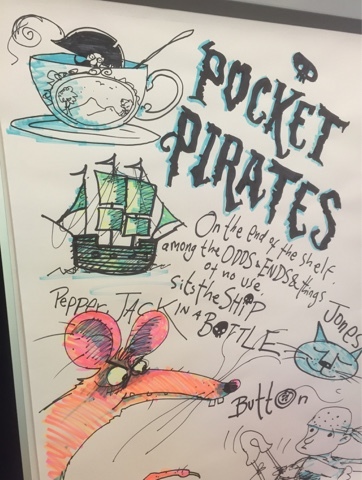 POCKET
PIRATES
On the end of the shelf.
among the ODDS & ENDS & things
of no use
sits the SHIP
IN A BOTTLE
Pepper JACK
Jones
Button